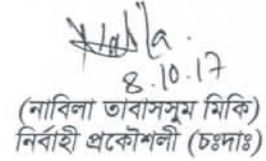 Nabila.
8.10.17
(নাবিলা তাবাসসুম মিকি)
নির্বাহী প্রকৌশলী (চঃদাঃ)